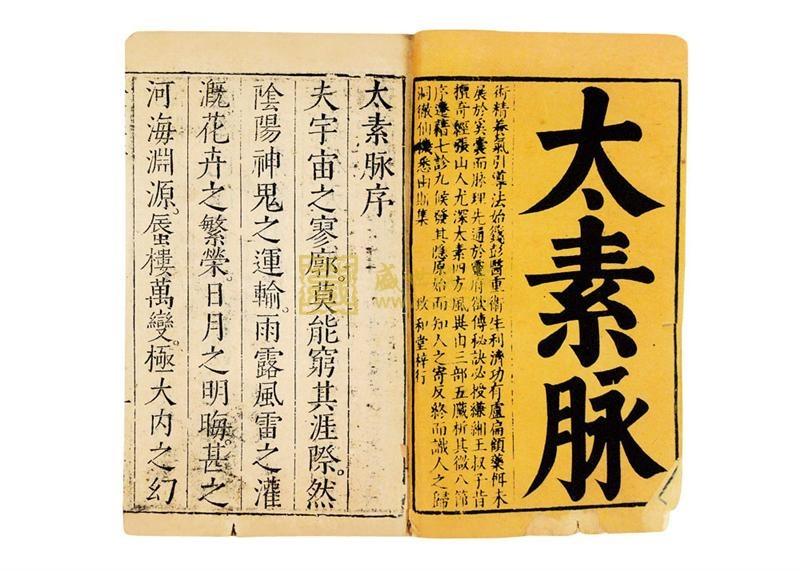 太素脉
術精養氣引導法始籛彭醫重衛生利濟功有盧扁顧藥餌未
展於奚囊而脉理先通於靈府欲傳秘訣必授縑緗王叔子昔
撰奇經張山人尤深太素四方風與由三部五臟析其微八節
序遷藉七診九候發其隱原始而知人之寄反終而識人之歸
洞徹仙機悉由斯集 致和堂梓行
太素脉序
夫宇宙之寥廓。莫能窮其涯際。然
陰陽神鬼之運輸。雨露風雷之灌
溉花卉之繁榮。日月之明晦。甚之
河海淵源。蜃樓萬變。極大内之幻